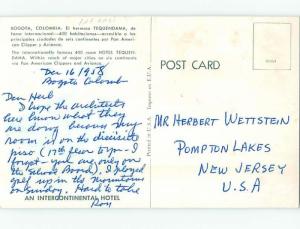 BOGOTA, COLOMBIA. El hermoso TEQUENDAMA, de
fama internacional—400 habitaciones—accesible a las
principales ciudades de seis continentes por Pan Ameri-
can Clipper y Avianca.
The internationally famous 400 room HOTEL TEQUEN-
DAMA. Within reach of major cities on six continents via
Pan American Clippers and Avianca.
Dec 16/1958
Bogota Colomb
Dear Herb
I hope the architects
here know what they
are doing because my
room is on the diecisiete
piso (17th floor byn - I
forgot - you are only on
the School Board). I played
golf up in the mountains
on Sunday. Hard to take
Roy
AN INTERCONTINENTAL HOTEL
Printed in U.S.A.
Impreso en E.U.A.
POST CARD
MR HERBERT WETTSTEIN
POMPTON LAKES
NEW JERSEY
U.S.A